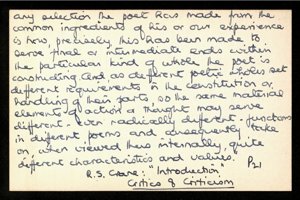 any selection the poet has made from the
common ingredients of his or our experience
is how precisely this has been made to
serve final or intermediate ends within
the particular kind of whole the poet is
constructing and, as different poetic wholes set
different requirements in the constitution or
handling of their parts, so the same material
elements of action or thought may serve
different – even radically different – functions
in different poems and consequently take
on, when viewed thus internally, quite
different characteristics and values. P21
R.S. Crane: "Introduction"
Critics & Criticism